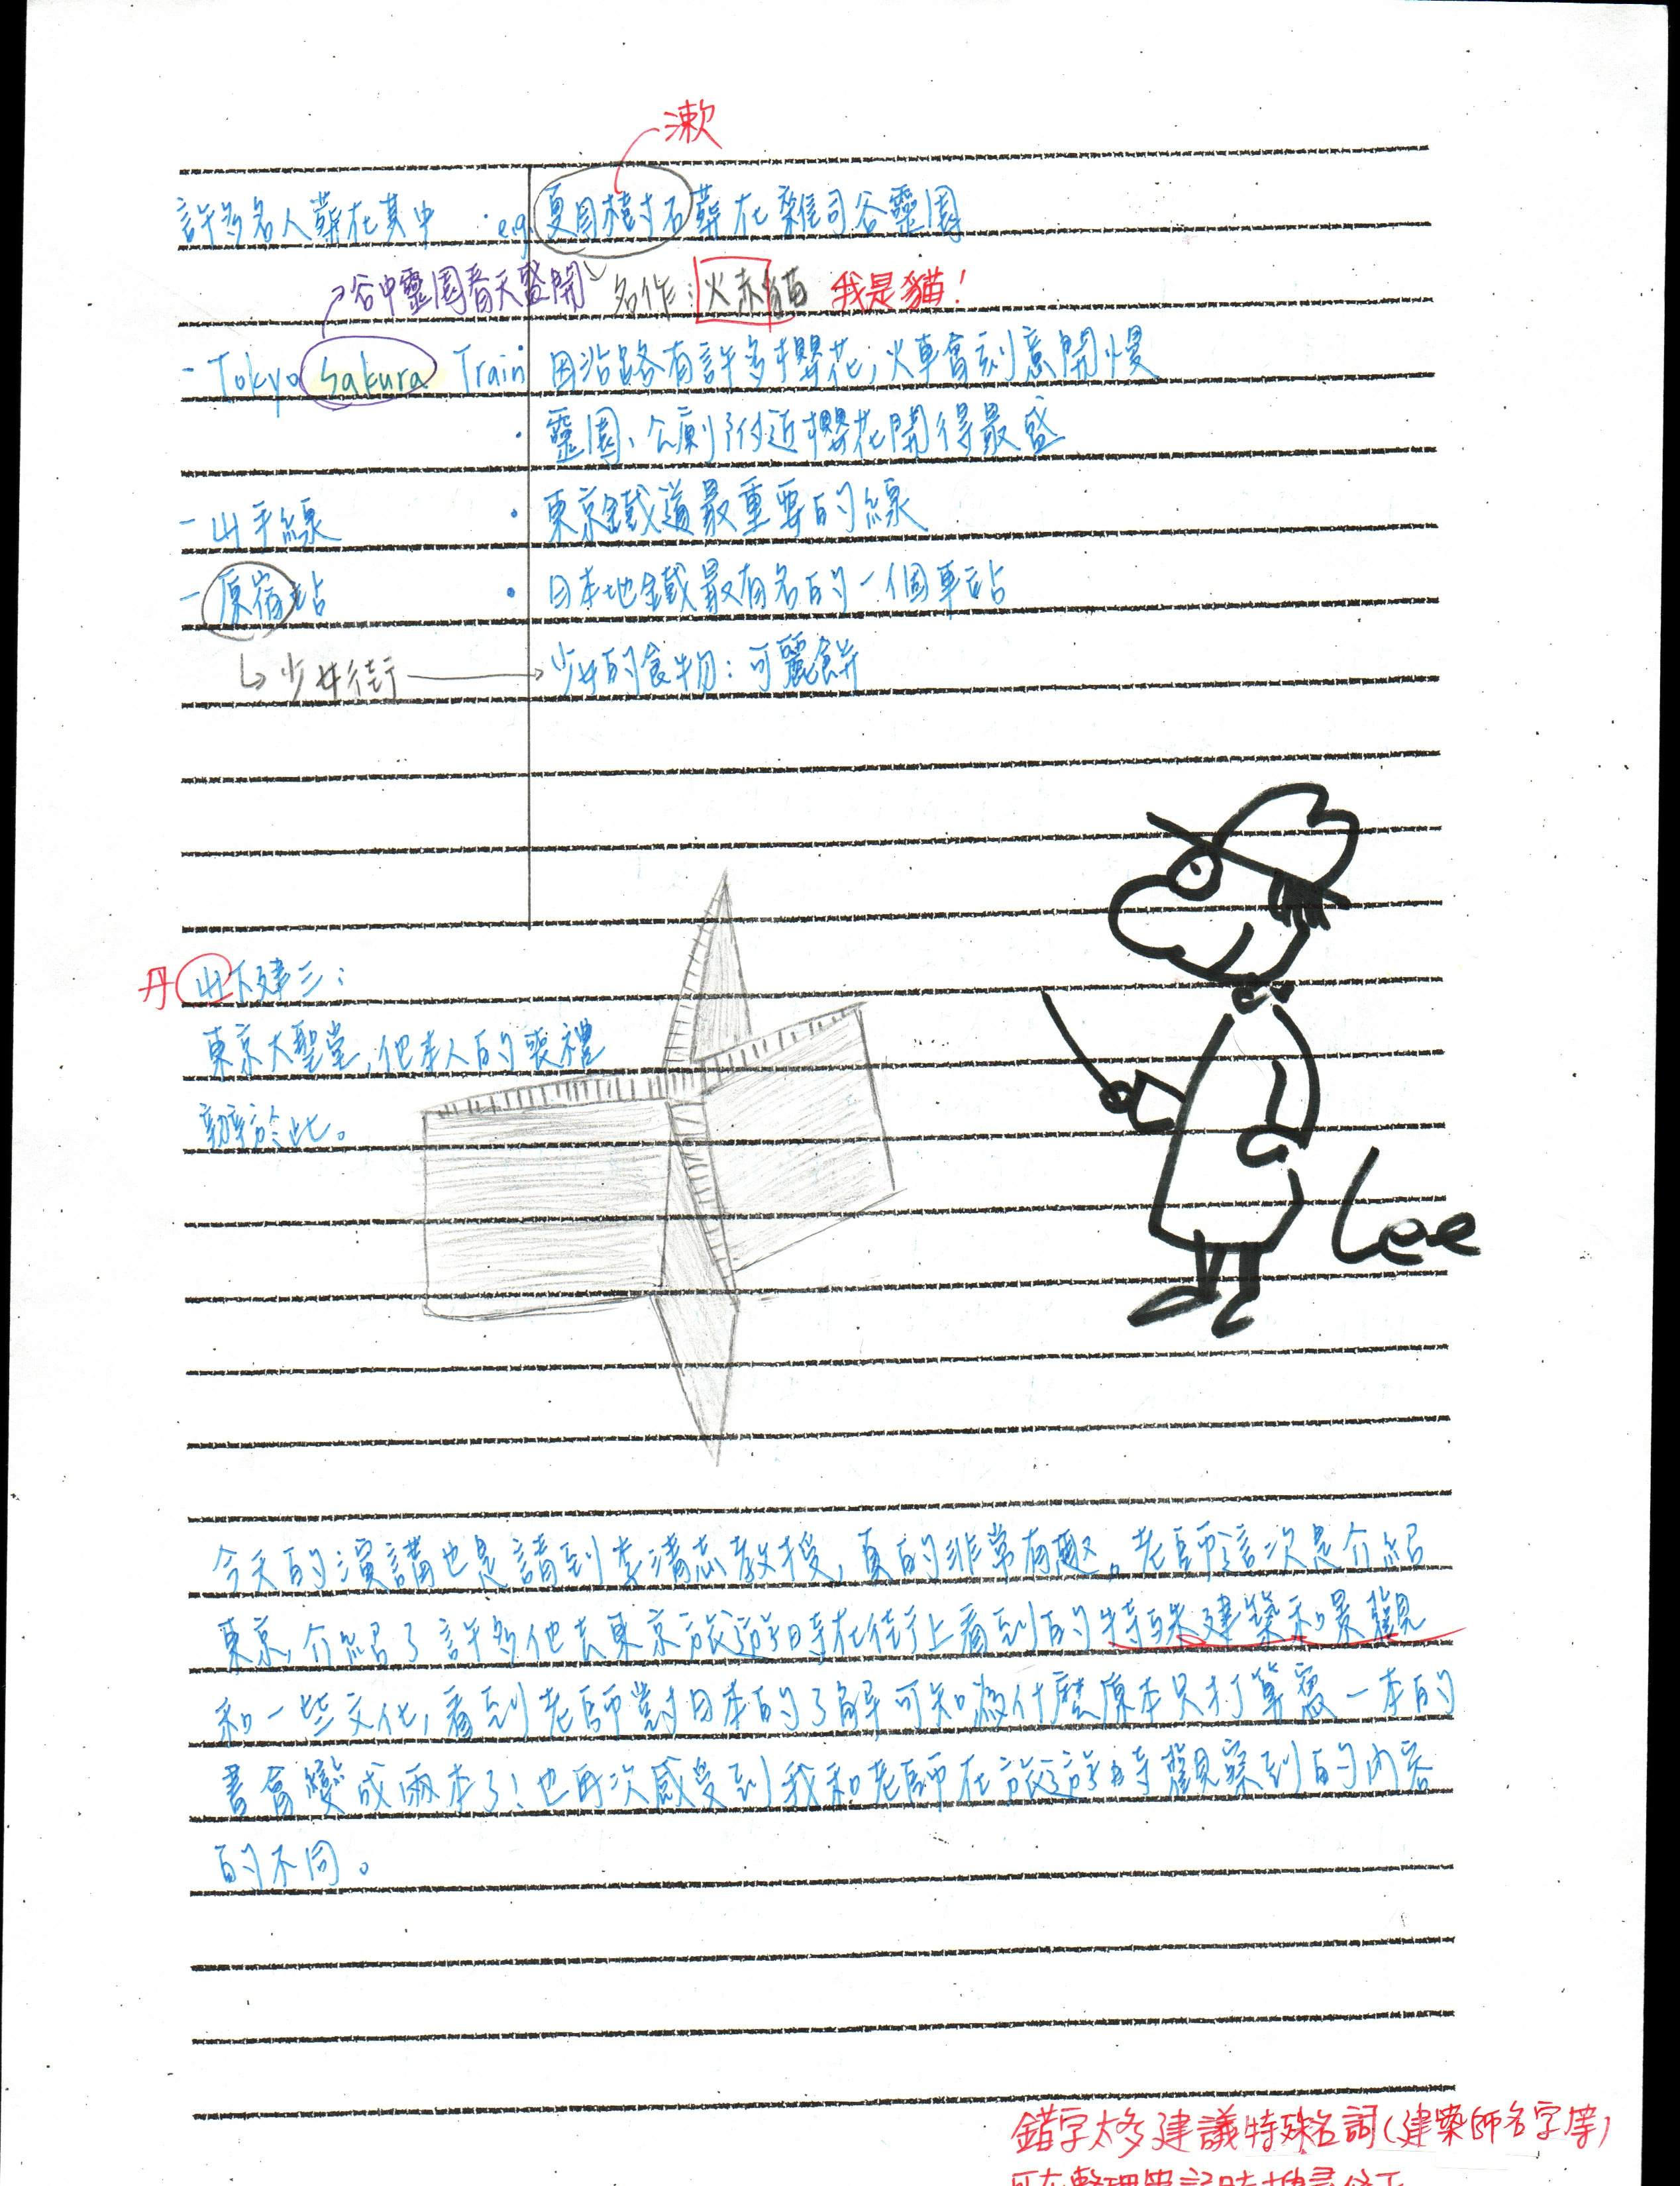 漱
許多名人葬在其中 ·e.g. 夏目樹石葬在雜司谷靈園
谷中靈園春天盛開 名作: 火赤貓 我是貓!
- Tokyo Sakura Train · 因沿路有許多櫻花,火車會刻意開慢
· 靈園、公廁附近櫻花開得最盛
- 山手線 · 東京鐵道最重要的線
- 原宿站 · 日本地鐵最有名的一個車站
↳少女街 → 少女的食物: 可麗餅
丹 山下建三:
東京大聖堂,他本人的喪禮
辦於此。
Lee
今天的演講也是請到李清志教授,真的非常有趣。老師這次是介紹
東京,介紹了許多他去東京旅遊時在街上看到的特殊建築和景觀
和一些文化,看到老師對日本的了解可知為什麼原本只打算寫一本的
書會變成兩本了!也再次感受到我和老師在旅遊時觀察到的內容
的不同。
錯字太多建議特殊名詞(建築師名字等)